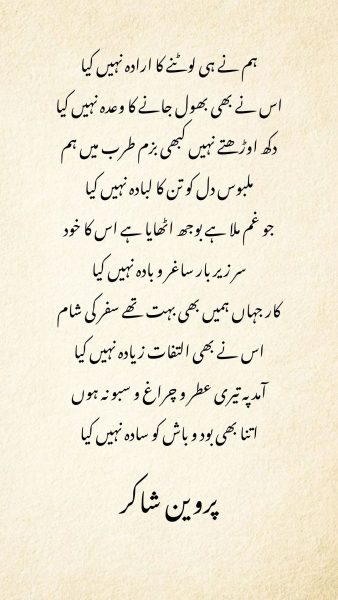 ہم نے ہی لوٹنے کا ارادہ نہیں کیا
اس نے بھی بھول جانے کا وعدہ نہیں کیا
دکھ اوڑھتے نہیں کبھی بزم طرب میں ہم
ملبوس دل کو تن کا لبادہ نہیں کیا
جو غم ملا ہے بوجھ اٹھایا ہے اس کا خود
سر زیر بار ساغر و بادہ نہیں کیا
کار جہاں ہمیں بھی بہت تھے سفر کی شام
اس نے بھی التفات زیادہ نہیں کیا
آمد پہ تیری عطر و چراغ و سبو نہ ہوں
اتنا بھی بود و باش کو سادہ نہیں کیا
پروین شاکر